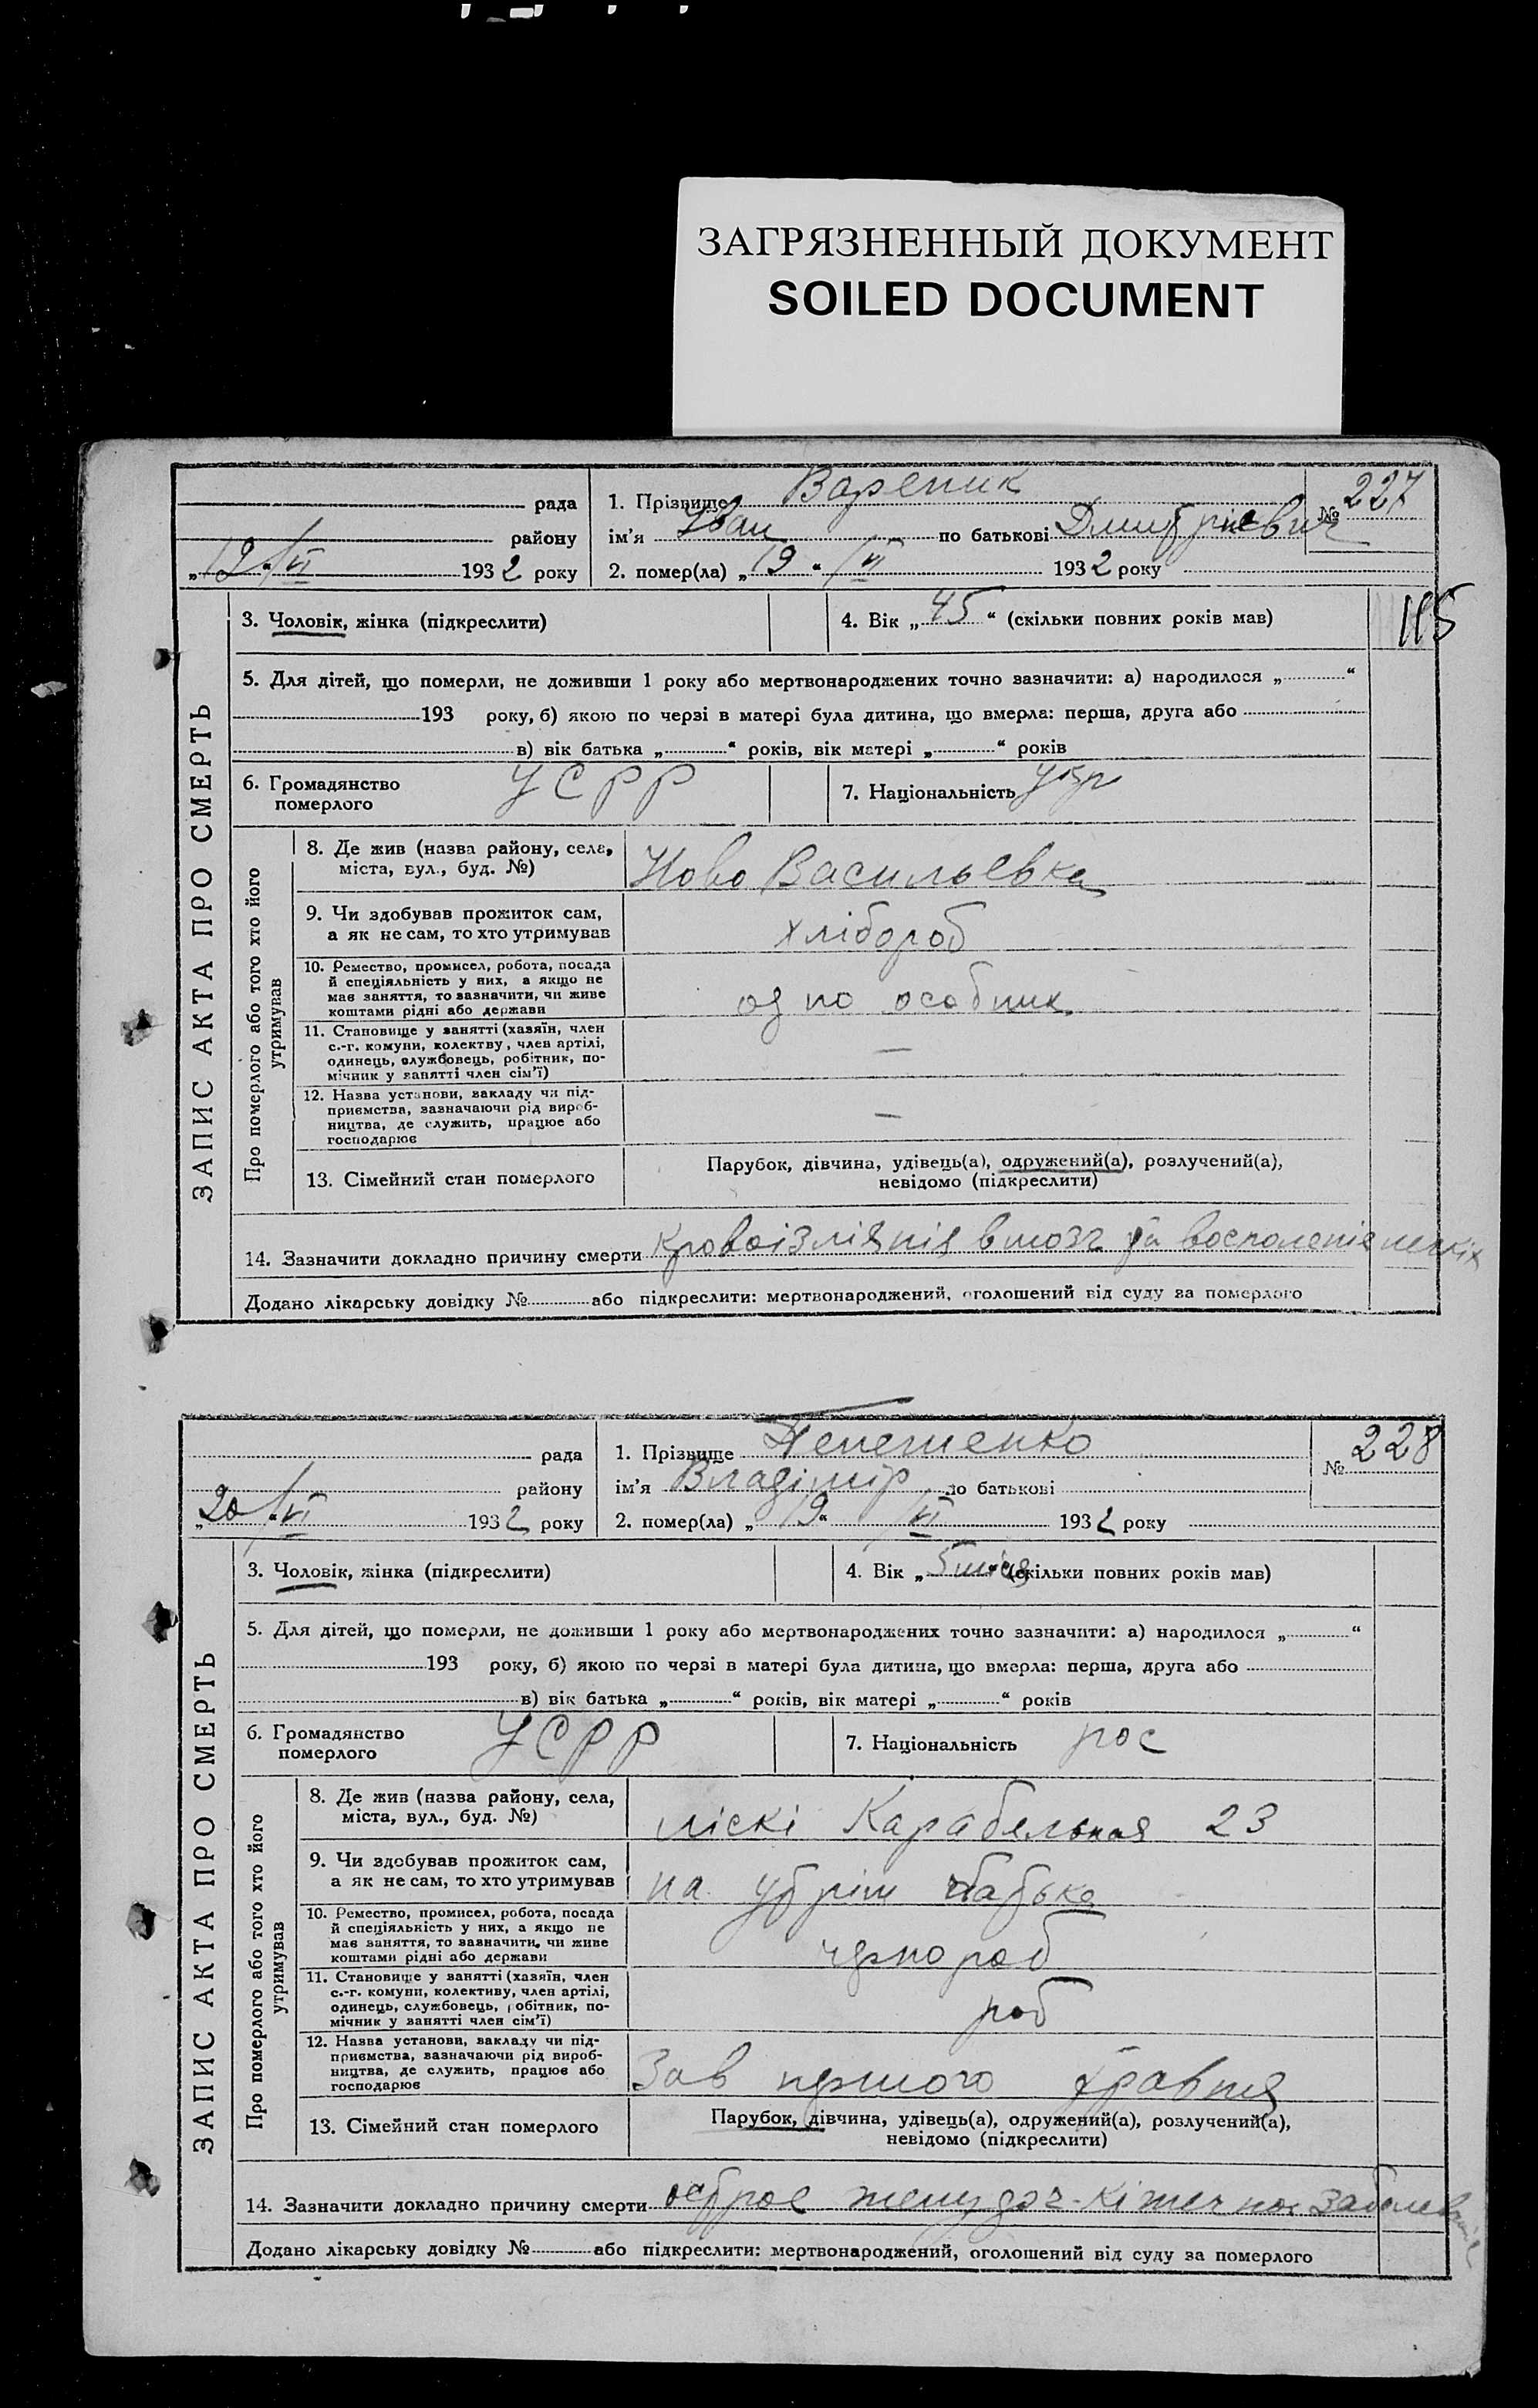 ЗАГРЯЗНЕННЫЙ ДОКУМЕНТ
SOILED DOCUMENT
рада
1. Прізвище Вареник
№ 227
району
ім’я Іван по батькові Дмитріевич
„12“/VI 1932 року
2. помер(ла) „19“ /VI 1932 року
115
ЗАПИС АКТА ПРО СМЕРТЬ
3. Чоловік, жінка (підкреслити)
4. Вік „45“ (скільки повних років мав)
5. Для дітей, що померли, не доживши 1 року або мертвонароджених точно зазначити: а) народилося „ “
193 року, б) якою по черзі в матері була дитина, що вмерла: перша, друга або
в) вік батька „ “ років, вік матері „ “ років
6. Громадянство
померлого
УСРР
7. Національність укр
Про померлого або того хто його
утримував
8. Де жив (назва району, села,
міста, вул., буд. №)
Ново Васильевка
9. Чи здобував прожиток сам,
а як не сам, то хто утримував
хлібороб
10. Ремество, промисел, робота, посада
й спеціяльність у них, а якщо не
має заняття, то зазначити, чи живе
коштами рідні або держави
одноособник
11. Становище у занятті (хазяїн, член
с.-г. комуни, колективу, член артілі,
одинець, службовець, робітник, по-
мічник у занятті член сім’ї)
—
12. Назва установи, закладу чи під-
приємства, зазначаючи рід вироб-
ництва, де служить, працює або
господарює
—
13. Сімейний стан померлого
Парубок, дівчина, удівець(а), одружений(а), розлучений(а),
невідомо (підкреслити)
14. Зазначити докладно причину смерти кровоізліяния в мозг та восполеніе легкіх
Додано лікарську довідку № або підкреслити: мертвонароджений, оголошений від суду за померлого
рада
1. Прізвище
№ 228
району
ім’я Владімір по батькові
„20“/VI 1932 року
2. помер(ла) „19“ /VI 1932 року
ЗАПИС АКТА ПРО СМЕРТЬ
3. Чоловік, жінка (підкреслити)
4. Вік „5 міся“ (скільки повних років мав)
5. Для дітей, що померли, не доживши 1 року або мертвонароджених точно зазначити: а) народилося „ “
193 року, б) якою по черзі в матері була дитина, що вмерла: перша, друга або
в) вік батька „ “ років, вік матері „ “ років
6. Громадянство
померлого
УСРР
7. Національність рос
Про померлого або того хто його
утримував
8. Де жив (назва району, села,
міста, вул., буд. №)
ліскі Карабельная 23
9. Чи здобував прожиток сам,
а як не сам, то хто утримував
на утрім батька
10. Ремество, промисел, робота, посада
й спеціяльність у них, а якщо не
має заняття, то зазначити, чи живе
коштами рідні або держави
чернороб
11. Становище у занятті (хазяїн, член
с.-г. комуни, колективу, член артілі,
одинець, службовець, робітник, по-
мічник у занятті член сім’ї)
роб
12. Назва установи, закладу чи під-
приємства, зазначаючи рід вироб-
ництва, де служить, працює або
господарює
Зав першого травня
13. Сімейний стан померлого
Парубок, дівчина, удівець(а), одружений(а), розлучений(а),
невідомо (підкреслити)
14. Зазначити докладно причину смерти острое желудоч-кішечное заболеваніе
Додано лікарську довідку № або підкреслити: мертвонароджений, оголошений від суду за померлого